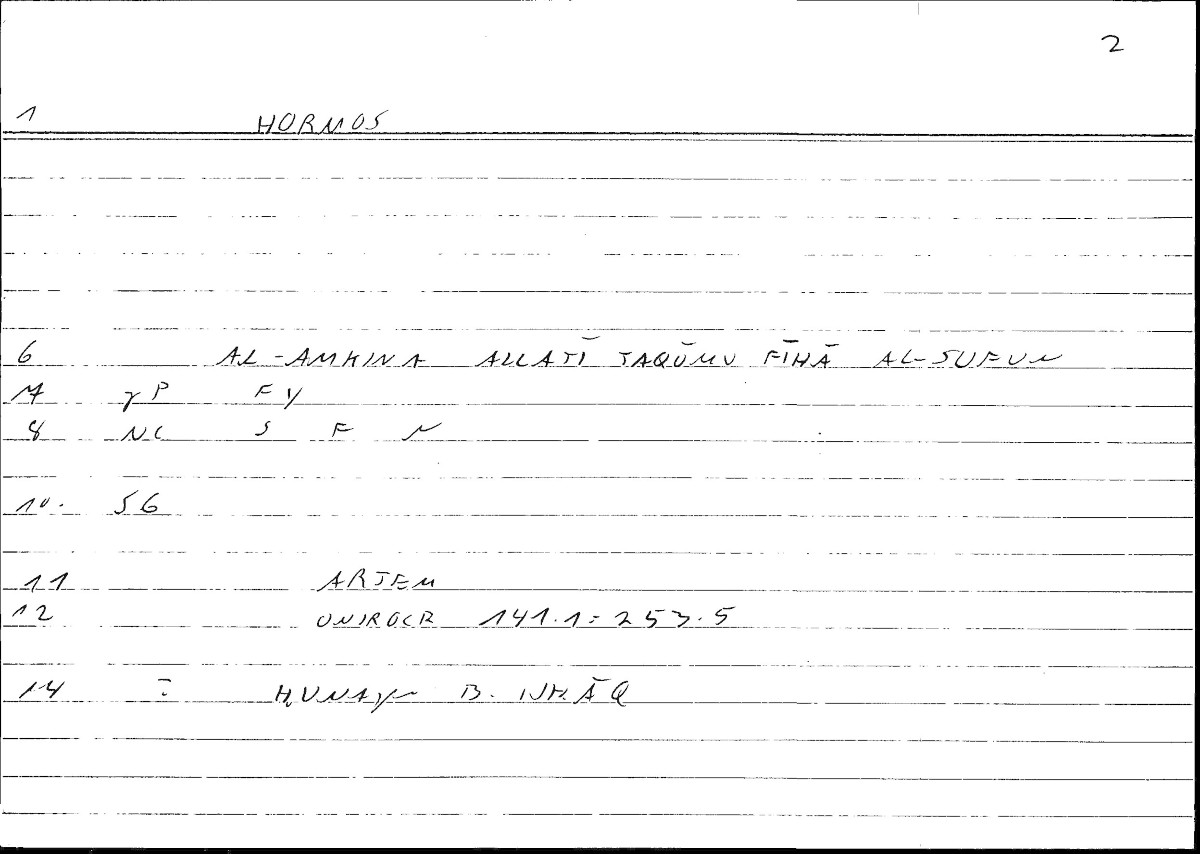 2
1 HORMOS
6 AL-AMKINA ALLATĪ TAQŪMU FĪHĀ AL-SUFUN
7 γP FY
8 NC S F N
10. 56
11 ARTEM
12 ONIROCR 141.1 = 253.5
14 ḤUNAYN B. ISḤĀQ